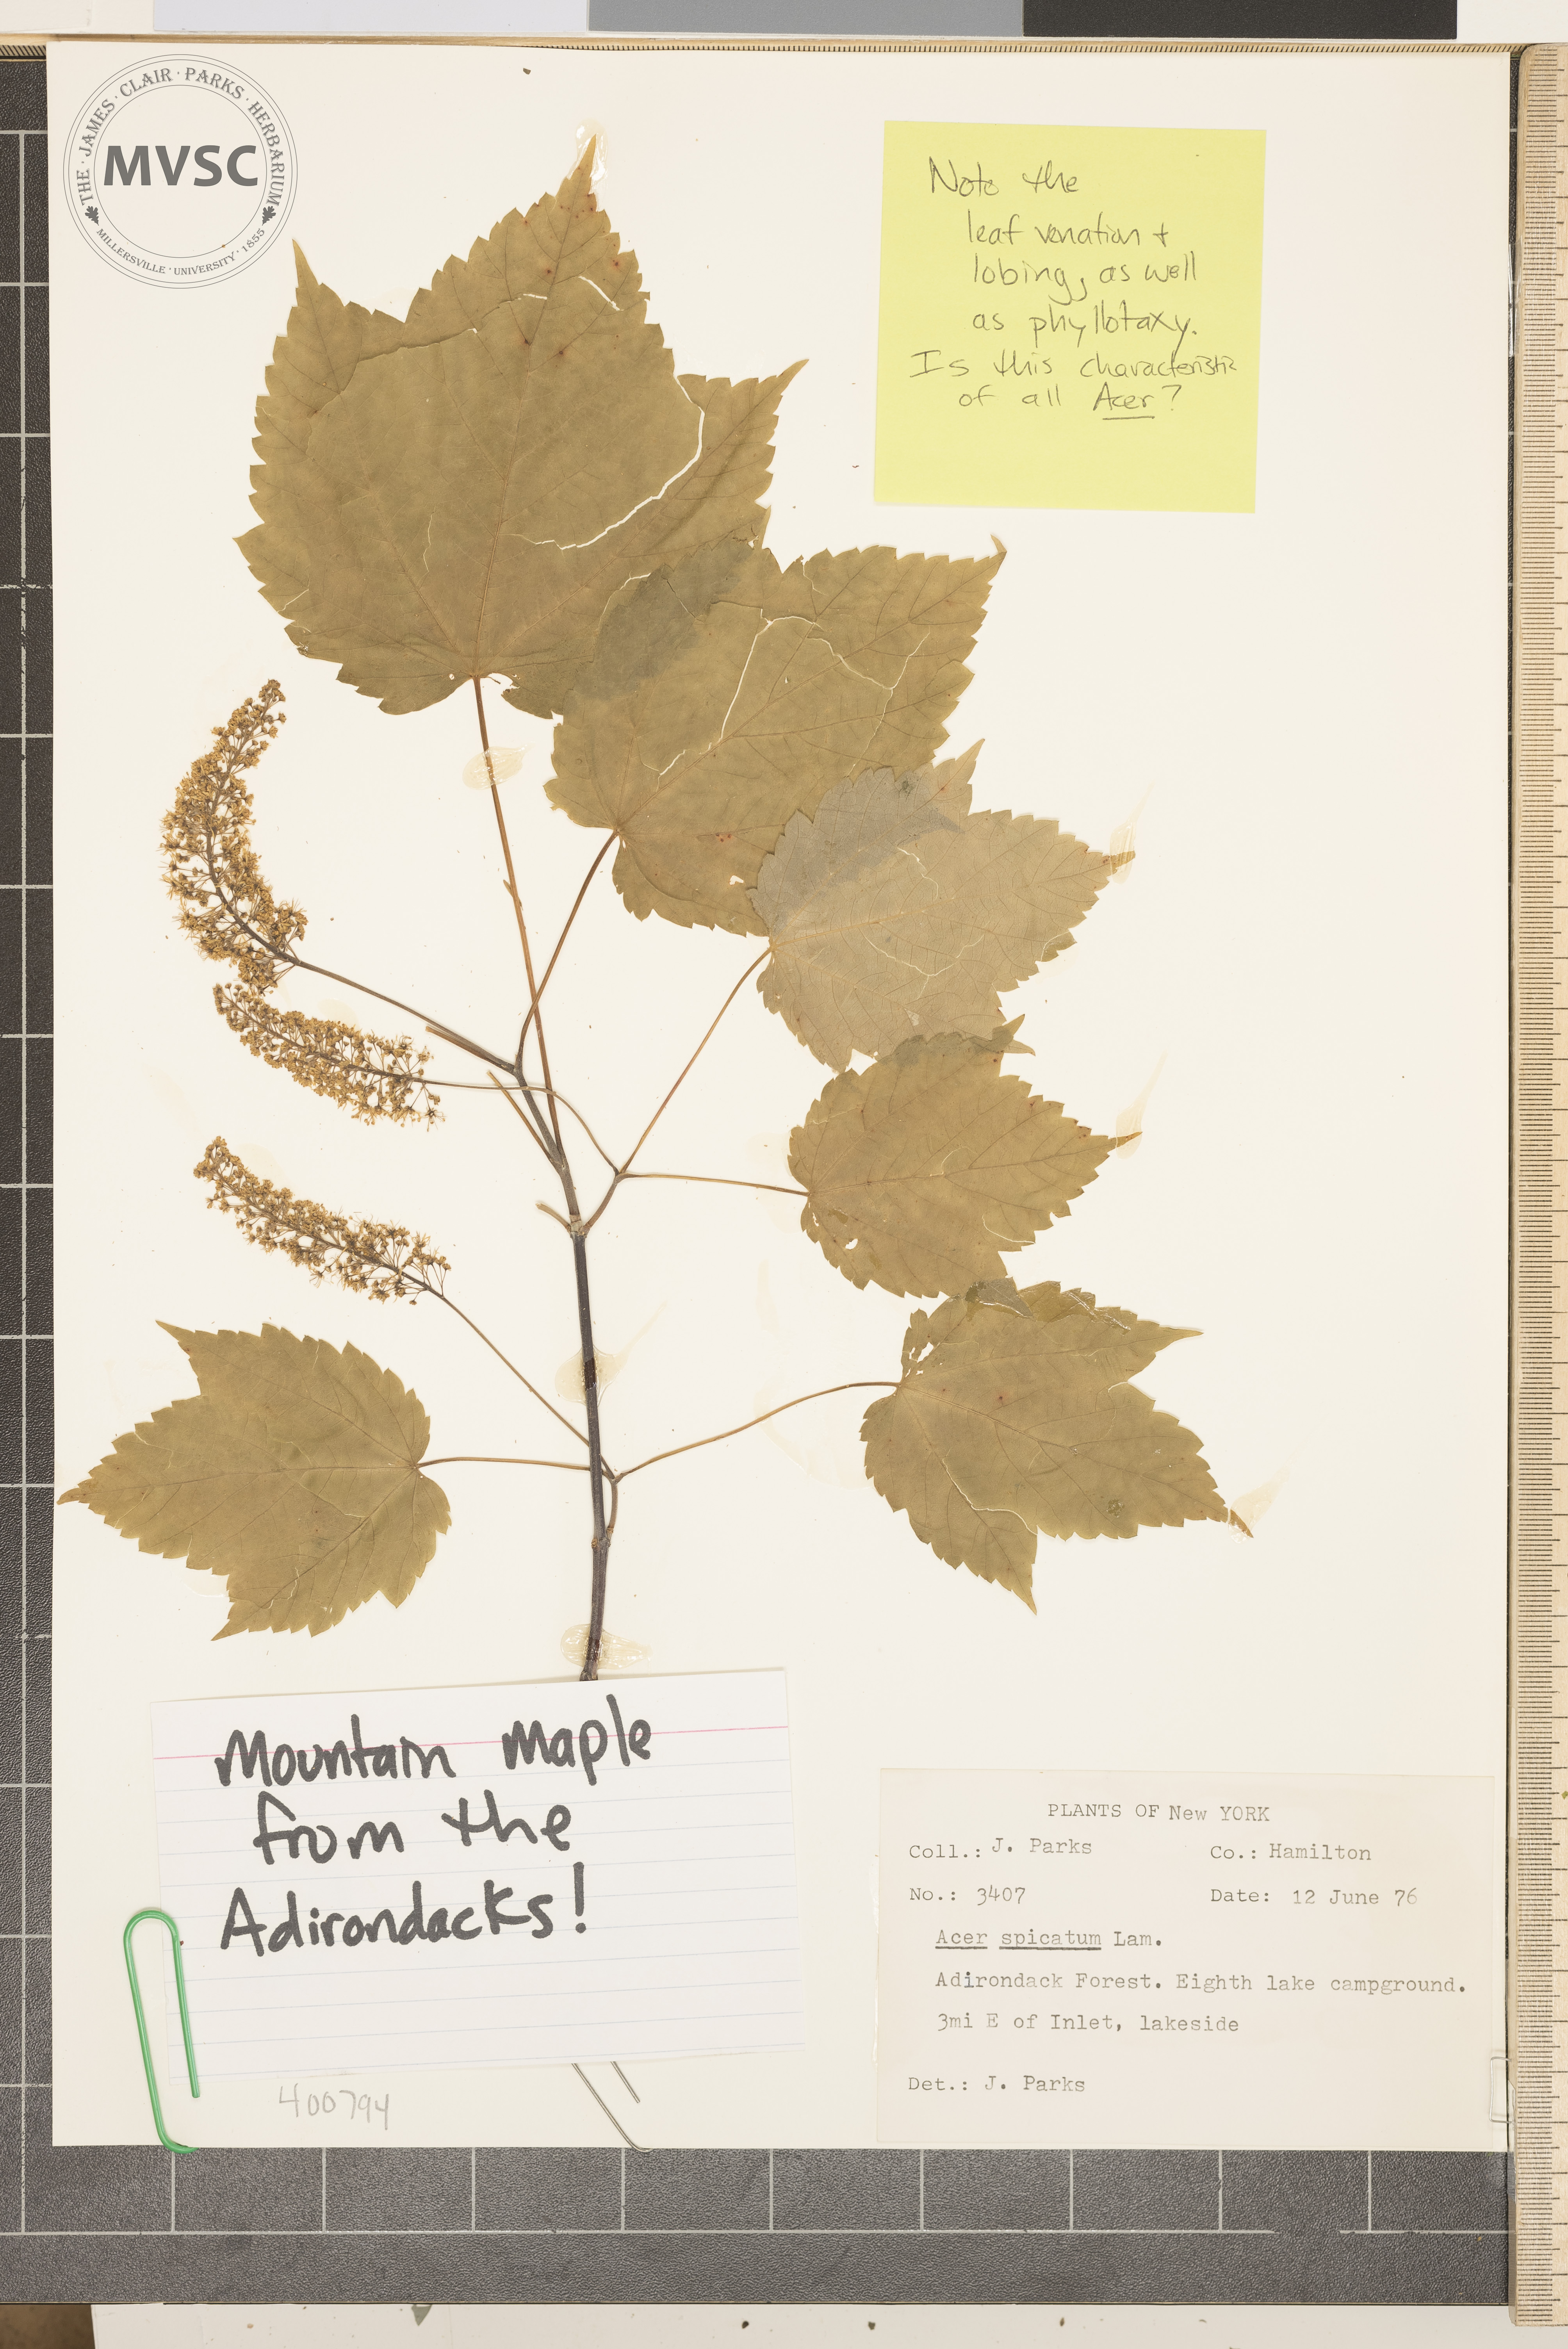 THE · JAMES · CLAIR · PARKS · HERBARIUM
MVSC
MILLERSVILLE · UNIVERSITY · 1855
Note the
leaf venation +
lobing, as well
as phyllotaxy.
Is this characteristic
of all Acer?
Mountain Maple
from the
Adirondacks!
400794
PLANTS OF New YORK
Coll.: J. Parks Co.: Hamilton
No.: 3407 Date: 12 June 76
Acer spicatum Lam.
Adirondack Forest. Eighth lake campground.
3mi E of Inlet, lakeside
Det.: J. Parks